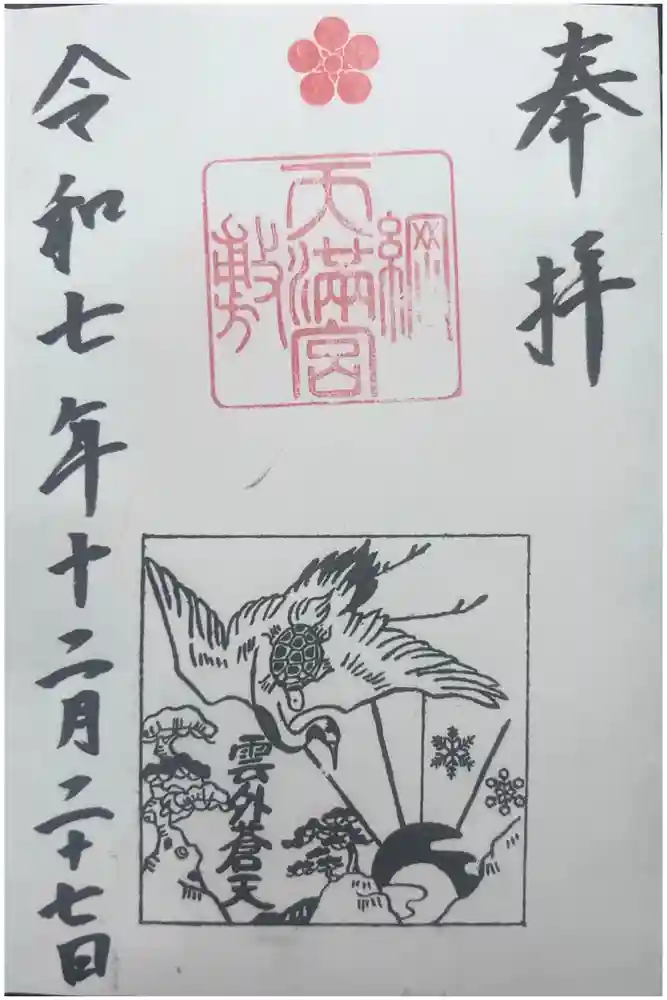 奉拝
綱敷天満宮
雲外蒼天
令和七年十二月二十七日